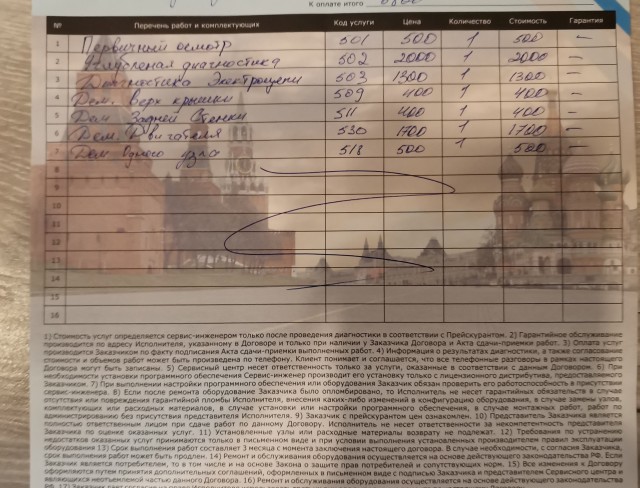 К оплате итого
№ Перечень работ и комплектующих Код услуги Цена Количество Стоимость Гарантия
1 Первичный осмотр 501 500 1 500 —
2 Углубленая диагностика 502 2000 1 2000 —
3 Диагностика Электроцепи 503 1300 1 1300 —
4 Дем. Верх крышки 509 400 1 400 —
5 Дем Задней Стенки 511 400 1 400 —
6 Дем. Двигателя 530 1700 1 1700 —
7 Дем Одного узла 518 500 1 500 —
8
9
10
11
12
13
14
15
16
1) Стоимость услуг определяется сервис-инженером только после проведения диагностики в соответствии с Прейскурантом. 2) Гарантийное обслуживание
производится по адресу Исполнителя, указанному в Договоре и только при наличии у Заказчика Договора и Акта сдачи-приемки работ. 3) Оплата услуг
производится Заказчиком по факту подписания Акта сдачи-приемки выполненных работ. 4) Информация о результатах диагностики, а также согласование
стоимости и объемов работ может быть произведена по телефону. Клиент понимает и соглашается, что все телефонные разговоры в рамках настоящего
Договора могут быть записаны. 5) Сервисный центр несет ответственность только за услуги, оказанные в соответствии с данным Договором. 6) При
необходимости установки программного обеспечения Сервис-инженер производит его установку только с лицензионного дистрибутива, предоставленного
Заказчиком. 7) При выполнении настройки программного обеспечения или оборудования Заказчик обязан проверить его работоспособность в присутствии
сервис-инженера. 8) Если после ремонта оборудование Заказчика было опломбировано, то Исполнитель не несет гарантийных обязательств в случае
отсутствия или повреждения гарантийной пломбы Исполнителя, внесения каких-либо изменений в конфигурацию оборудования, в случае замены узлов,
комплектующих или расходных материалов, в случае установки или настройки программного обеспечения, в случае монтажных работ, работ по
администрированию без присутствия представителя Исполнителя. 9) Заказчик с прейскурантом цен ознакомлен. 10) Представитель Заказчика является
полностью ответственным лицом при сдаче работ по данному Договору. Исполнитель не несет ответственности за некомпетентность представителя
Заказчика по оценке оказанных услуг. 11) Установленные узлы или расходные материалы возврату не подлежат. 12) Требования по устранению
недостатков оказанных услуг принимаются только в письменном виде и при условии выполнения установленных производителем правил эксплуатации
оборудования 13) Срок выполнения работ составляет 3 месяца с момента заключения настоящего договора. В случае необходимости, с согласия Заказчика,
срок выполнения работ может быть продлен. 14) Ремонт и обслуживание оборудования осуществляется на основе действующего законодательства РФ. Если
Заказчик является потребителем, то в том числе и на основе Закона о защите прав потребителей и сопутствующих норм. 15) Все изменения к Договору
оформляются путем принятия дополнительных соглашений, оформленных в письменном виде с подписью Заказчика и представителем Сервисного центра и
являющихся неотъемлемой частью данного Договора. 16) Ремонт и обслуживание оборудования осуществляется на основе действующего законодательства
РФ. 17)